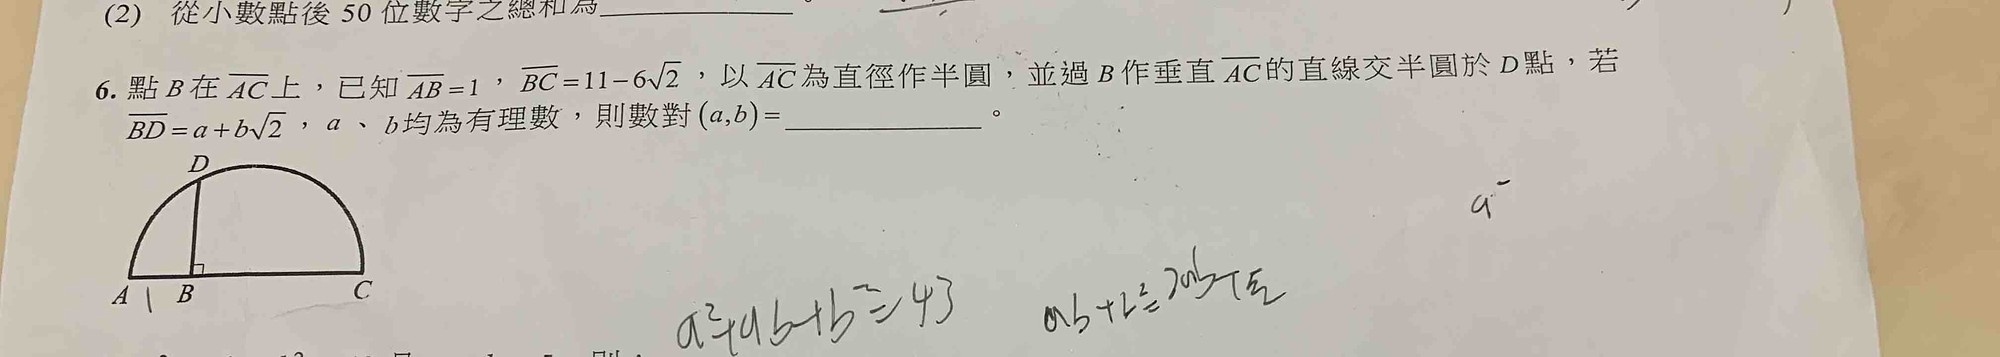 (2) 從小數點後 50 位數字之總和為__________。
6. 點 B 在 \overline{AC} 上，已知 \overline{AB}=1，\overline{BC}=11-6\sqrt{2}，以 \overline{AC} 為直徑作半圓，並過 B 作垂直 \overline{AC} 的直線交半圓於 D 點，若
\overline{BD}=a+b\sqrt{2}，a、b 均為有理數，則數對 (a,b)=__________。
D
A 1 B C
a
a²+ab+b²=43